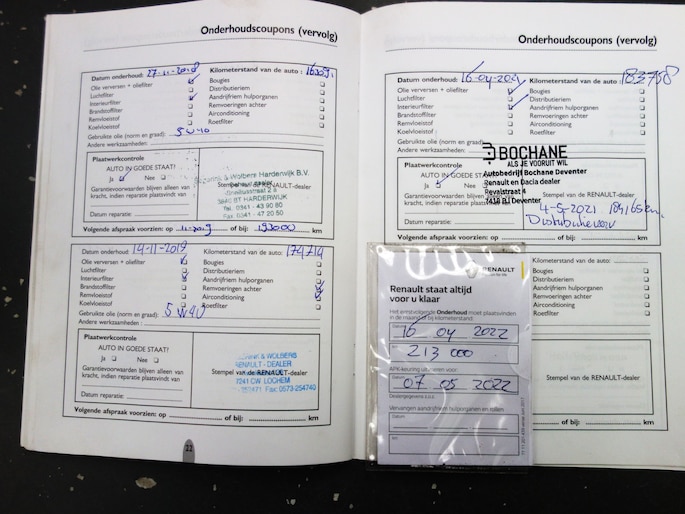 Onderhoudscoupons (vervolg)
Datum onderhoud: 27-11-2018 Kilometerstand van de auto :
Olie verversen + oliefilter Bougies
Luchtfilter Distributieriem
Interieurfilter Aandrijfriem hulporganen
Brandstoffilter Remvoeringen achter
Remvloeistof Airconditioning
Koelvloeistof Roetfilter
Gebruikte olie (norm en graad): 5W40
Andere werkzaamheden:
Plaatwerkcontrole
AUTO IN GOEDE STAAT!
Ja Nee
Garantievoorwaarden blijven alleen van
kracht, indien reparatie plaatsvindt van
Datum reparatie:
Wolbers Harderwijk B.V.
Stempel van de RENAULT-dealer
HARDERWIJK
Tel. 0341 - 43 90 80
Fax. 0341 - 47 20 50
Volgende afspraak voorzien: op 11-2019 of bij: 193000 km
Datum onderhoud: 14-11-2019 Kilometerstand van de auto : 174714
Olie verversen + oliefilter Bougies
Luchtfilter Distributieriem
Interieurfilter Aandrijfriem hulporganen
Brandstoffilter Remvoeringen achter
Remvloeistof Airconditioning
Koelvloeistof Roetfilter
Gebruikte olie (norm en graad): 5W40
Andere werkzaamheden:
Plaatwerkcontrole
AUTO IN GOEDE STAAT!
Ja Nee
Garantievoorwaarden blijven alleen van
kracht, indien reparatie plaatsvindt van
Datum reparatie:
& WOLBERS
RENAULT - DEALER
Stempel van de RENAULT-dealer
7241 CW LOCHEM
Fax 0573-254740
Volgende afspraak voorzien: op of bij: km
22
Onderhoudscoupons (vervolg)
Datum onderhoud: 16-04-2021 Kilometerstand van de auto : 183758
Olie verversen + oliefilter Bougies
Luchtfilter Distributieriem
Interieurfilter Aandrijfriem hulporganen
Brandstoffilter Remvoeringen achter
Remvloeistof Airconditioning
Koelvloeistof Roetfilter
Gebruikte olie (norm en graad):
Andere werkzaamheden:
BOCHANE
ALS JE VOORUIT WIL
Autobedrijf Bochane Deventer
Renault en Dacia dealer
Revalstraat 4
7418 BJ Deventer
Plaatwerkcontrole
AUTO IN GOEDE STAAT!
Ja Nee
Stempel van de RENAULT-dealer
Garantievoorwaarden blijven alleen van
kracht, indien reparatie plaatsvindt van
Datum reparatie:
4-5-2021
of bij: km
RENAULT
Renault staat altijd
voor u klaar
Het eerstvolgende Onderhoud moet plaatsvinden
in de maand of bij kilometerstand:
Datum 16 04 2022
km 213 000
APK-keuring uitvoeren voor:
Datum 07 05 2022
Vervangen aandrijfriem hulporganen en rollen
Datum
km
Bougies
Distributieriem
Aandrijfriem hulporganen
Remvoeringen achter
Airconditioning
Roetfilter
Stempel van de RENAULT-dealer
of bij: km